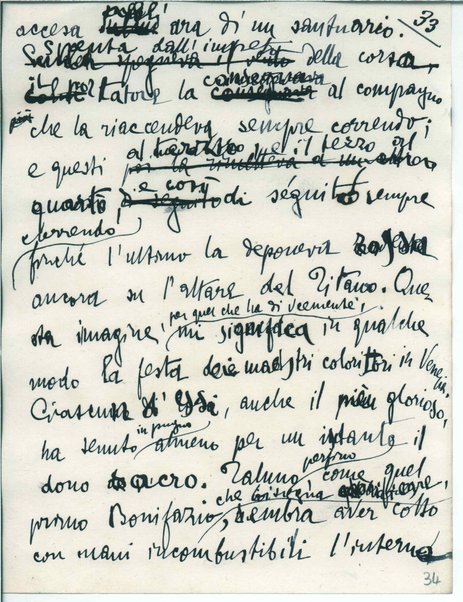 33
accesa nell' ara d'un santuario.
Spenta dall'impeto della corsa,
il portatore la consegnava al compagno
che la riaccendeva sempre correndo;
e questi al terzo, e il terzo al
quarto, e così di séguito sempre
correndo,
finché l'ultimo la deponeva rossa
ancora su l'altare del Titano. Que-
per quel che ha di veemente,
sta imagine, mi significa in qualche
modo la festa dei maestri coloritori in Venezia.
Ciascun d'essi, anche il più glorioso,
in pugno
ha tenuto almeno per un istante il
perfino
dono sacro. Taluno come quel
che bisogna
primo Bonifazio, sembra aver colto
con mani incombustibili l'interno
34